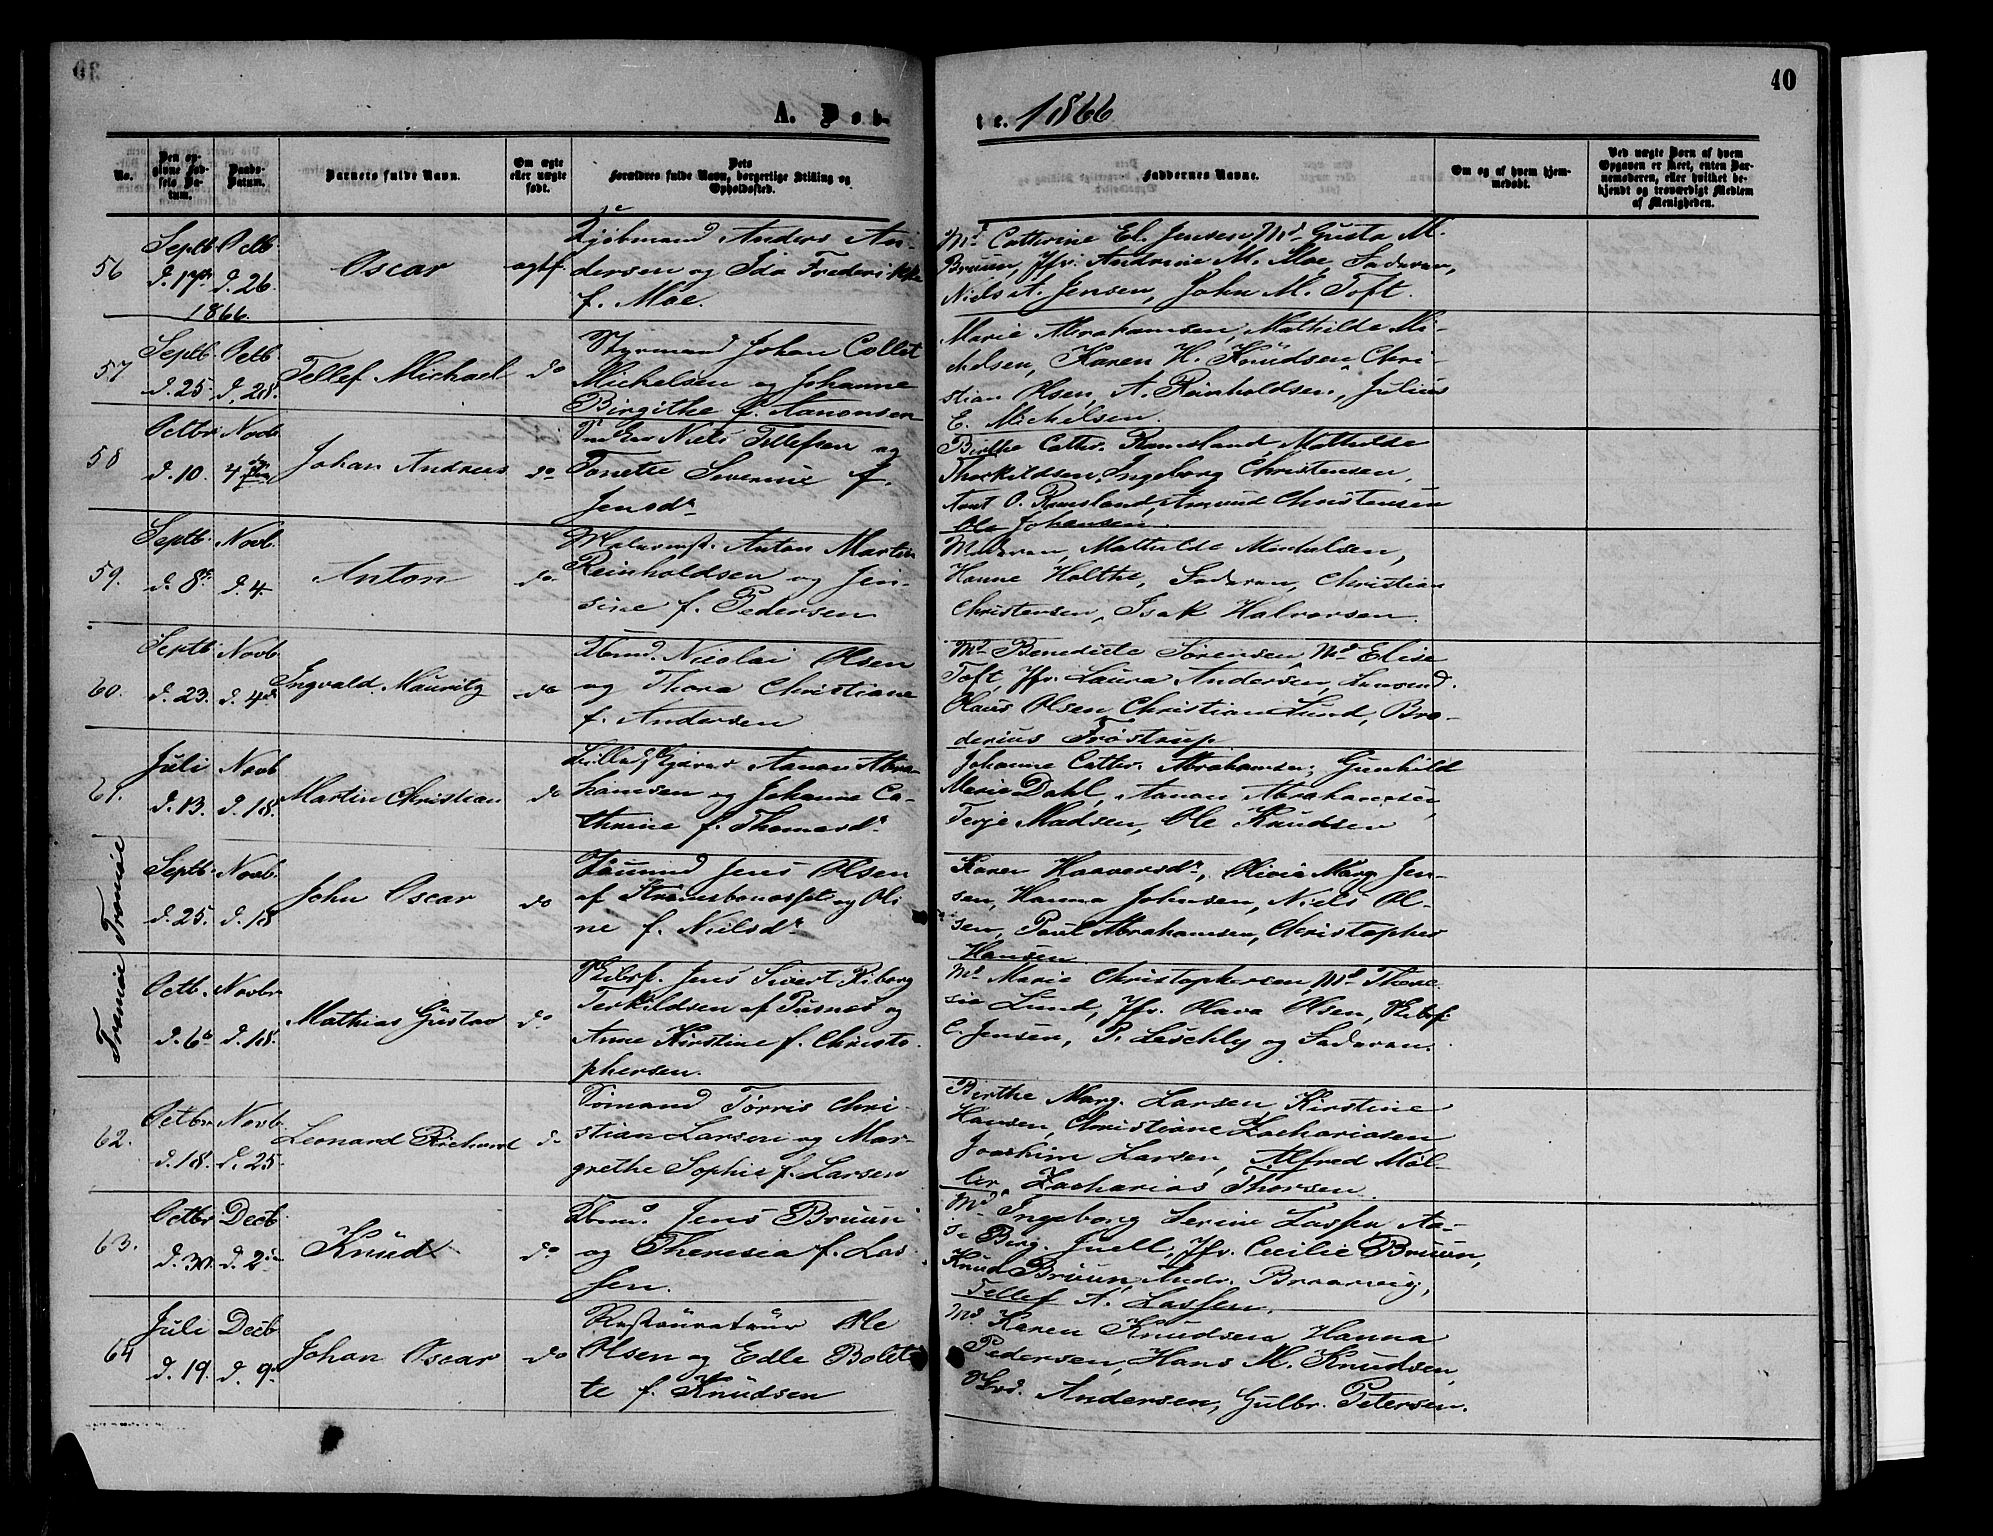 40
A. Døb-
te. 1866
No.
Den op-
givne Fød-
sels Da-
tum.
Daabs-
Datum.
Barnets fulde Navn.
Om ægte
eller uægte
født.
Dets
Forældres fulde Navn, borgerlige Stilling og
Opholdssted.
Faddernes Navne.
Om og af hvem hjem-
medøbt.
Ved uægte Børn af hvem
Opgaven er skeet, enten Bar-
nemoderen, eller hvilket be-
kjendt og troværdigt Medlem
af Menigheden.
56
Septb. Octb.
d. 17de d. 26
1866.
Oscar
ægtf.
Kjøbmand Anders An-
dersen og Ida Frederikke
f. Moe.
Md. Cathrine El. Jensen, Md. Gusta M.
Bruun, Jfr. Andrine M. Moe, Faderen,
Niels A. Jensen, John M. Toft.
57
Septb. Octb.
d. 25. d. 28.
Tellef Michael
do
Styrmand Johan Collet
Michelsen og Johanne
Birgithe f. Aanonsen
Marie Abrahamsen, Mathilde Mi-
chelsen, Karen H. Knüdsen, Chri-
stian Olsen, A. Reinholdsen, Julius
E. Michelsen.
58
Octbr. Novb.
d. 10. 4
Johan Andreas
do
Niels Tellefsen og
Tonette Severine f.
Jensdr.
Birthe Cathr. Ramsland, Mathilde
Thorkildsen, Ingeborg Christensen,
O. Ramsland, Amund Christensen
Ole Johansen.
59.
Septb. Novb.
d. 8de d. 4.
Anton
do.
Malermst. Anton Martin
Reinholdsen og Jen-
sine f. Pedersen
Moderen, Mathilde Michelsen,
Hanne Holthe, Faderen, Christian
Christensen, Isak Halvorsen.
60.
Septb. Novb.
d. 23. d. 4de
Ingvald Mauritz
do
Tbmd. Nicolai Olsen
og Thora Christiane
f. Andersen
Md. Benedicte Sørensen, Md. Elise
Toft, Jfr. Laura Andersen,
Olaus Olsen, Christian Lund, Bro-
derius Trøstrup
61.
Juli Novb
d. 13. d. 18.
Martin Christian
do
Aanon Abra-
hamsen og Johanne Ca-
thrine f. Thomasdr.
Johanne Cathr. Abrahamsen, Gunhild
Marie Dahl, Aanon Abrahamsen,
Terje Madsen, Ole Knudsen
Tromøe
Septb. Novb.
d. 25. d. 18
John Oscar
do
Jens Olsen
af Strømsbuaasset og Oli
ne f. Nielsdr.
Karen Haaversdr., Olivie Marg. Jen-
sen, Hanna Johnsen, Niels Ol-
sen, Paul Abrahamsen, Christopher
Hansen
Tromøe
Octb. Novbr
d. 6te d. 18.
Mathias Güstav
do
Skibsf. Jens Sivert Riborg
Terkildsen af Pusnes og
Anne Kirstine f. Christo-
phersen.
Md. Marie Christophersen, Md. There-
sie Lund, Jfr. Olava Olsen, Skibsf.
C. Jensen, P. Leschly og Faderen.
62.
Octbr Novb
d. 18. d. 25
Leonard Richard
do
Sømand Tørris Chri-
stian Larsen og Mar-
grethe Sophie f. Larsen
Birthe Marg. Larsen, Kirstine
Hansen, Christiane Zachariasen
Joachim Larsen, Alfred Møl-
ler, Zacharias Thorsen.
63.
Octbr Decb
d. 30. d. 2den
Knüd
do
Tbmd. Jens Bruun
og Theresia f. Las-
sen.
Md. Ingeborg Serine Lassen, Aa-
se Berg. Juell, Jfr. Cecilie Bruun,
Knud Bruun, Andr. Braarvig,
Tellef A. Lassen.
64
Juli Decb
d. 19. d. 9de
Johan Oscar
do
Restaurateür Ole
Olsen og Edle Bolet-
te f. Knüdsen
Md. Karen Knudsen, Hanna
Pedersen, Hans M. Knudsen,
Andersen, Gulbr. Petersen.